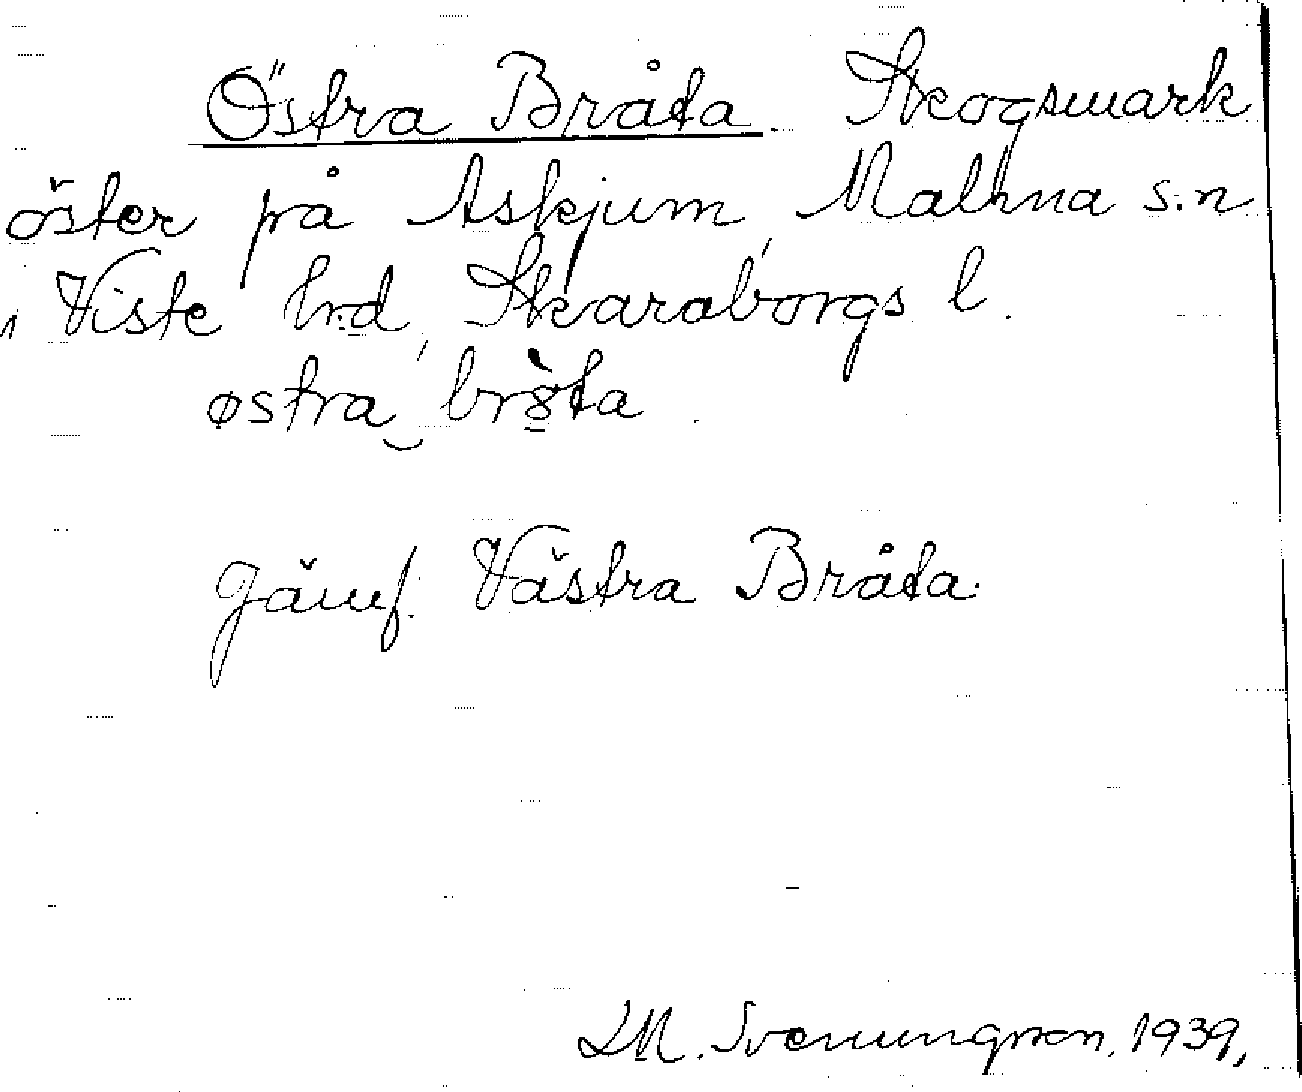 Östra Bråta. Skogsmark
öster på Askjum, Malma s:n
i Viste hrd, Skaraborgs l.
østra bròta.
Jämf. Västra Bråta.
LM. Svenungsson. 1939,